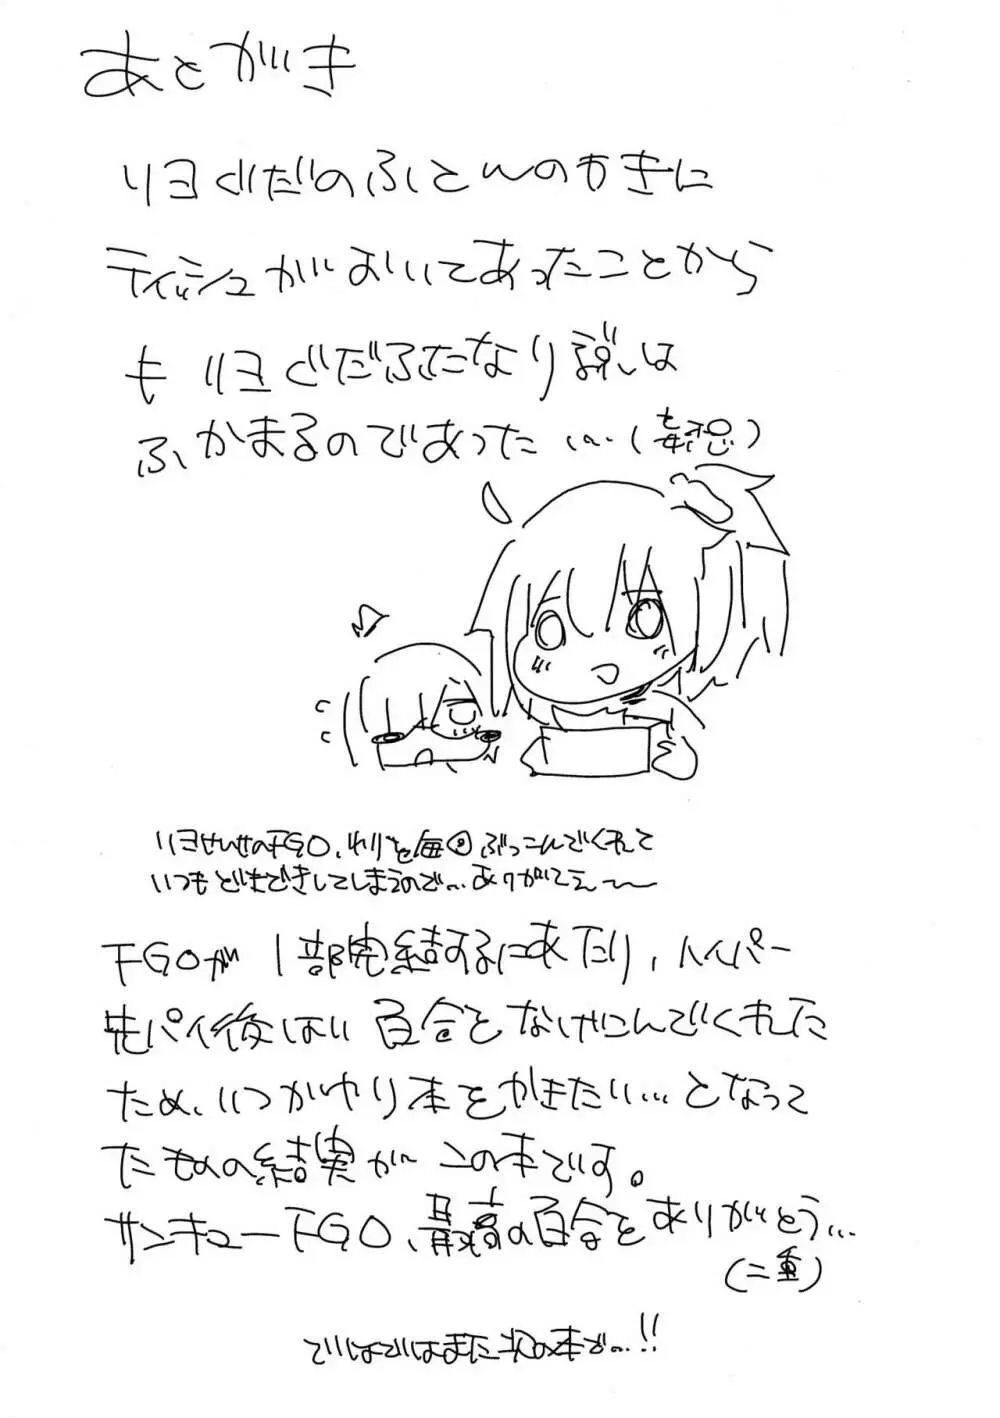 あとがき
リヨぐだのふとんのわきに
ティッシュがおいてあったことから
も リヨぐだふたなり説は
ふかまるのであった…(毒想)
リヨせんせのFGO、わりと毎回ぶっこんでくれて
いつもどきどきしてしまうので…ありがてえ〜〜
FGOが1部完結するにあたり、ハイパー
先パイ後はい百合をなげこんでくれた
ため、いつかやり本をかきたい…となって
たものの結実が この本です。
サンキューFGO、最高の百合をありがとう…
(二重)
ではではまた次の本で…!!